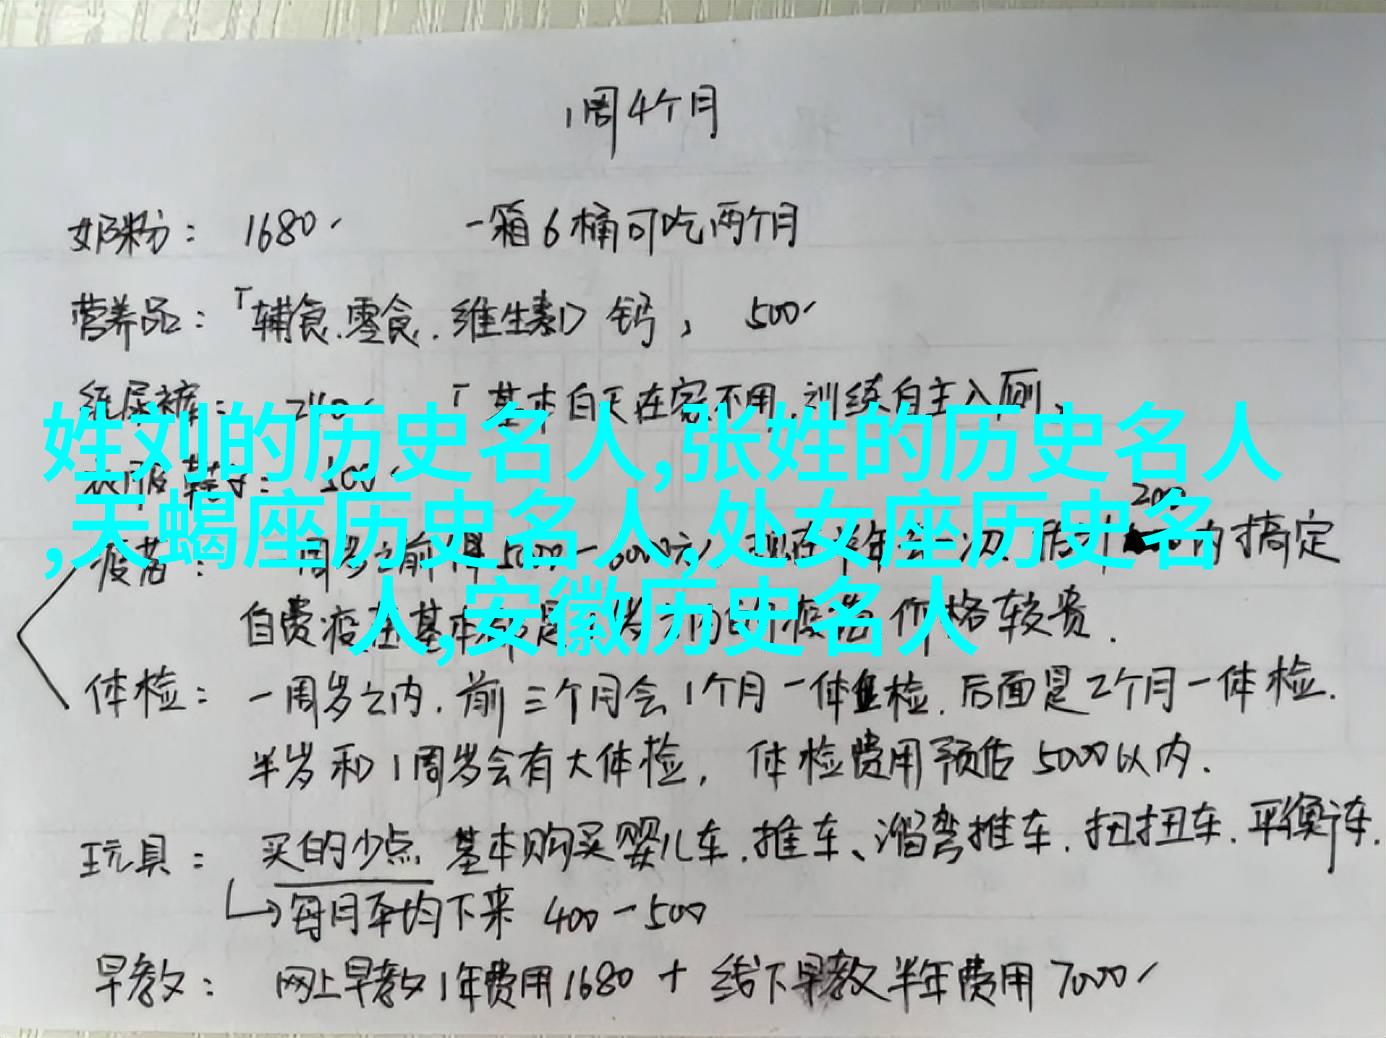 1周4个月
奶粉: 1680 一箱6桶可吃两个月
营养品:「辅食.零食.维生素D 钙, 500
纸尿裤: 「基本白天在家不用,训练自主入厕、
姓刘的历史名人,张姓的历史名人
,天蝎座历史名人,处女座历史名
人,安徽历史名人
200
疫苗: 内搞定
自费疫苗基本 价格较贵.
体检: 一周岁之内.前三个月会1个月一体检.后面是2个月一体检.
半岁和1周岁会有大体检, 体检费用预估5000以内.
玩具: 买的少点 基本购买婴儿车.推车、溜弯推车.扭扭车.平衡车.
每月平均下来 400-500
早教: 网上早教1年费用1680 + 线下早教半年费用7000